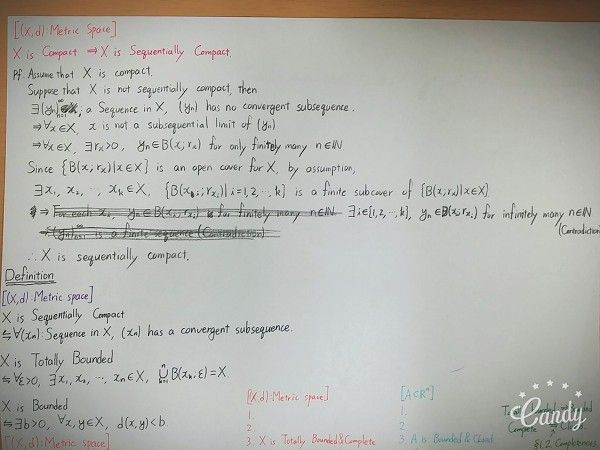 [(X,d): Metric Space]
X is Compact ⇒ X is Sequentially Compact.
Pf. Assume that X is compact.
Suppose that X is not sequentially compact, then
∃(yₙ)ₙ₌₁^∞, a Sequence in X, (yₙ) has no convergent subsequence.
⇒ ∀x∈X, x is not a subsequential limit of (yₙ)
⇒ ∀x∈X, ∃rₓ>0, yₙ∈B(x;rₓ) for only finitely many n∈ℕ
Since {B(x;rₓ)|x∈X} is an open cover for X, by assumption,
∃x₁, x₂, ⋯, xₖ∈X, {B(xᵢ;rₓᵢ)|i=1,2,⋯,k} is a finite subcover of {B(x;rₓ)|x∈X}
⇒ For each xᵢ, yₙ∈B(xᵢ, rₓᵢ) is for finitely many n∈ℕ ∃i∈{1,2,⋯,k}, yₙ∈B(xᵢ;rᵢ) for infinitely many n∈ℕ
⇒ (yₙ)ₙ₌₁^∞ is a finite sequence (Contradiction) (Contradiction)
∴ X is sequentially compact.
Definition
[(X,d): Metric space]
X is Sequentially Compact
⇋ ∀(xₙ): Sequence in X, (xₙ) has a convergent subsequence.
X is Totally Bounded
⇋ ∀ε>0, ∃x₁, x₂, ⋯, xₙ∈X, ⋃ₖ₌₁ⁿ B(xₖ;ε)=X
X is Bounded
⇋ ∃b>0, ∀x,y∈X, d(x,y)<b
[(X,d): Metric space]
[(X,d): Metric space]
1.
2.
3. X is Totally Bounded & Complete
[A⊂ℝⁿ]
1.
2.
3. A is Bounded & Closed
Complete Closed
§1.2. Completeness
Candy